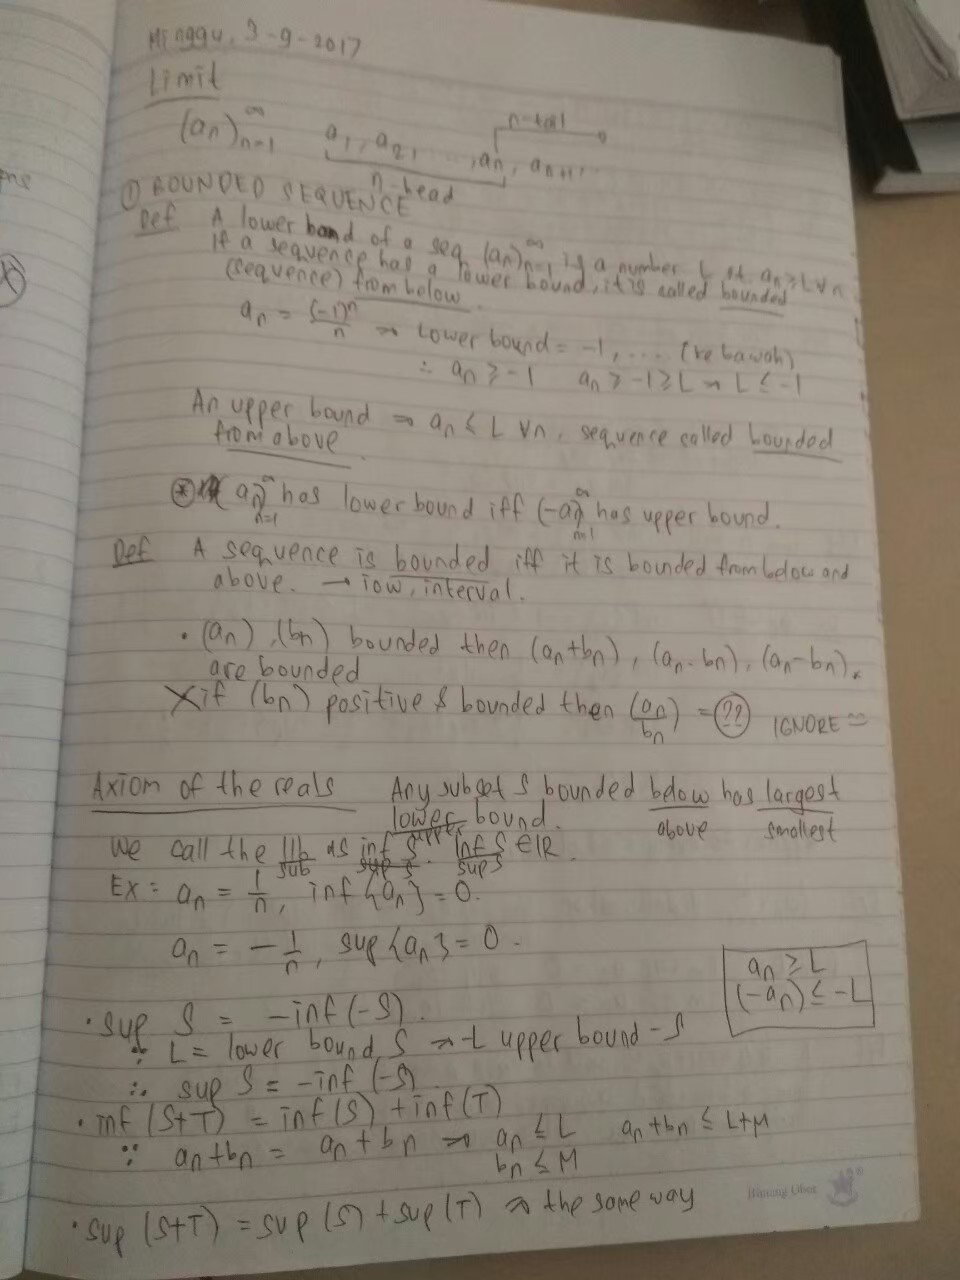 Minggu, 3-9-2017
Limit
(an)∞n=1 a1, a2, ..., an, an+1, n-tail
n-head
① BOUNDED SEQUENCE
Def A lower band of a seq (an)∞n=1 is a number L st. an ≥ L ∀n.
If a sequence has a lower bound, it is called bounded
(sequence) from below.
an = (-1)^n/n → Lower bound = -1, .... (ke bawah)
∴ an ≥ -1 an ≥ -1 ≥ L → L ≤ -1
An upper bound ⇒ an ≤ L ∀n, sequence called bounded
from above
⊛ (an)∞n=1 has lower bound iff (-an)∞n=1 has upper bound.
Def A sequence is bounded iff it is bounded from below and
above. → interval.
• (an), (bn) bounded then (an+bn), (an·bn), (an-bn).
are bounded
X if (bn) positive & bounded then (an/bn) = ?? IGNORE
Axiom of the reals Any subset S bounded below has largest
lower bound. above smallest
upper
We call the llb as inf S. inf S ∈ IR.
sub sup S sup S
Ex = an = 1/n, inf {an} = 0.
an = -1/n, sup {an} = 0.
an ≥ L
(-an) ≤ -L
• sup S = -inf (-S).
∵ L = lower bound S → -L upper bound -S
∴ sup S = -inf (-S)
• inf (S+T) = inf(S) + inf(T)
∵ an+bn = an + bn ⇒ an ≤ L an+bn ≤ L+M
bn ≤ M
• sup (S+T) = sup (S) + sup (T) → the same way